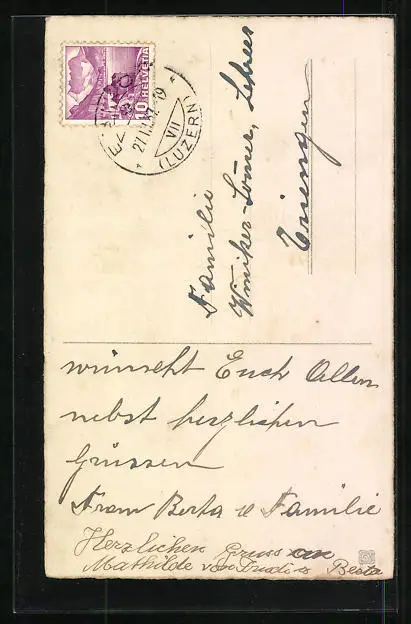 10 HELVETIA
27.II
VII
(LUZERN)
Familie
Lehrer
Triengen
wünscht Euch Allen
nebst herzlichen
Grüssen
Frau Berta u Familie
Herzlichen Gruss an
Mathilde von Berta